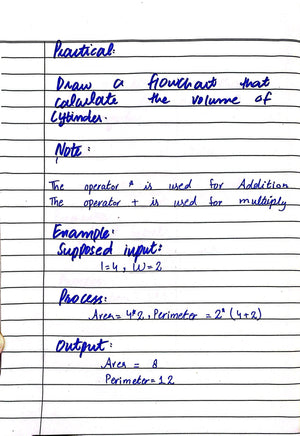 Practical:
Draw a flowchart that
calculate the volume of
Cylinder.
Note:
The operator * is used for Addition
The operator + is used for multiply
Example:
Supposed input:
l=4, W=2
Process:
Area= 4*2, Perimeter = 2*(4+2)
Output:
Area = 8
Perimeter=12